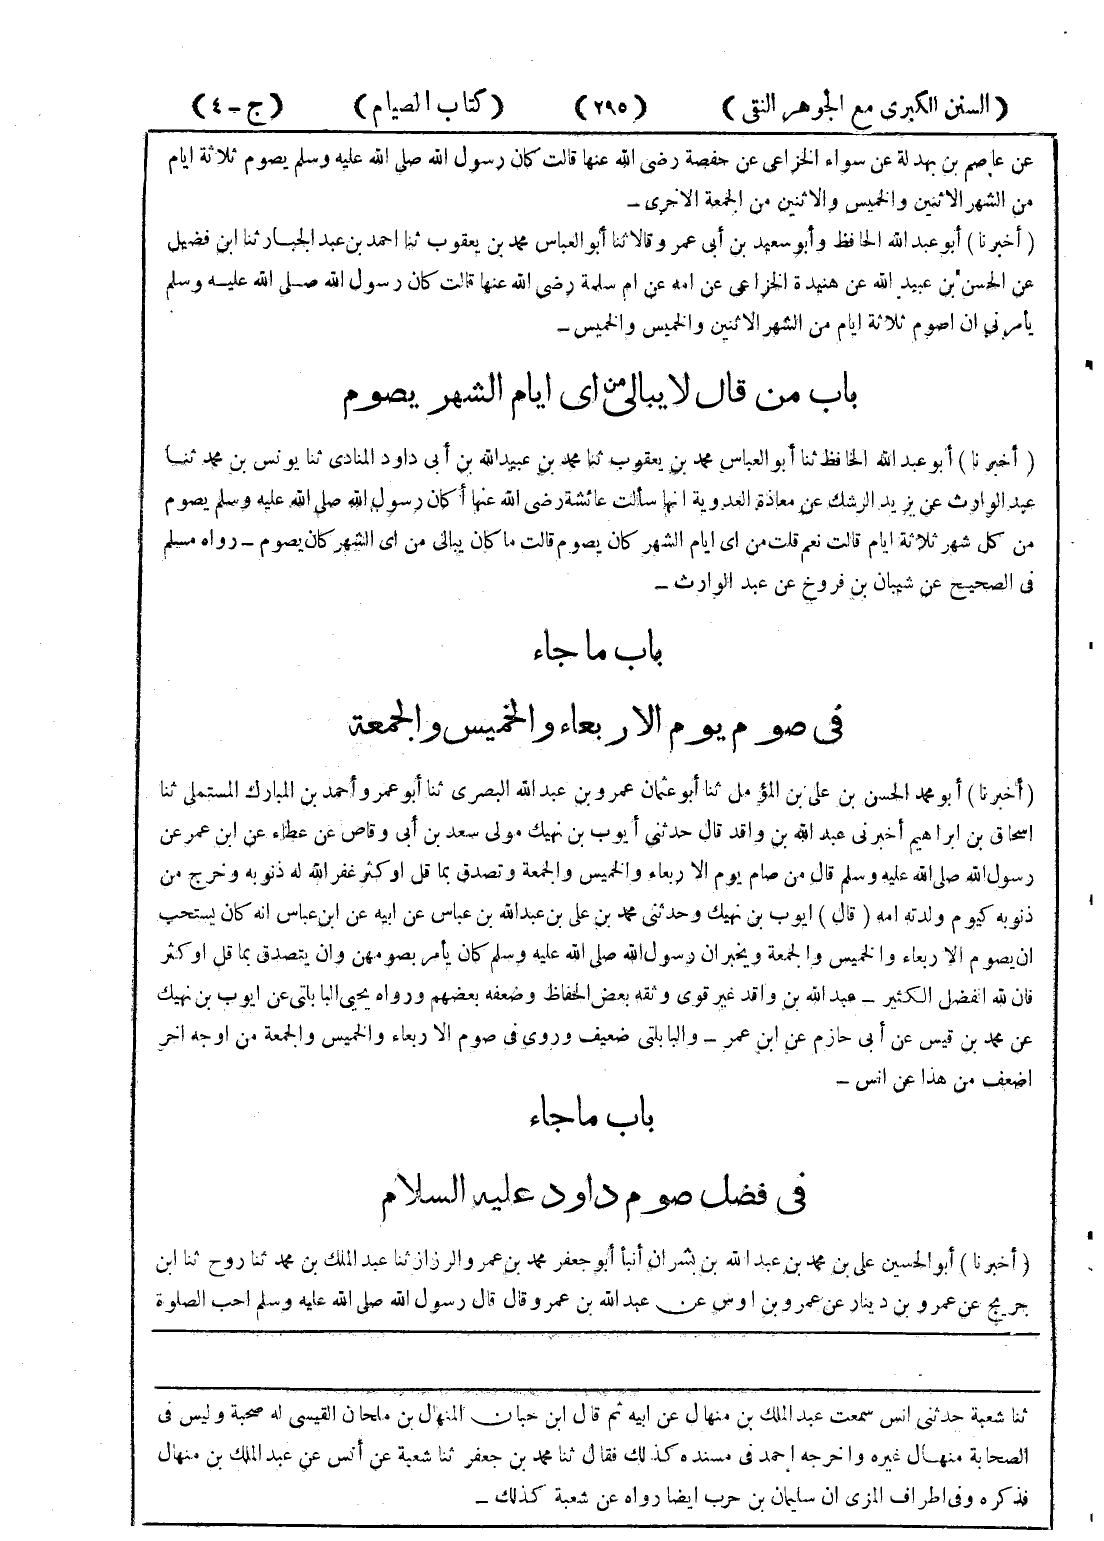 (السنن الكبرى مع الجوهر النقى) (٢٩٥) (كتاب الصيام) (ج-٤)
عن عاصم بن بهدلة عن سواء الخزاعى عن حفصة رضى الله عنها قالت كان رسول الله صلى الله عليه وسلم يصوم ثلاثة ايام
من الشهر الاثنين والخميس والاثنين من الجمعة الاخرى ـ
(أخبرنا) أبو عبد الله الحافظ وأبو سعيد بن أبى عمرو قالا ثنا أبو العباس محمد بن يعقوب ثنا احمد بن عبد الجبار ثنا ابن فضيل
عن الحسن بن عبيد الله عن هنيدة الخزاعى عن امه عن ام سلمة رضى الله عنها قالت كان رسول الله صلى الله عليه وسلم
يأمرنى ان اصوم ثلاثة ايام من الشهر الاثنين والخميس والخميس ـ
باب من قال لا يبالى من اى ايام الشهر يصوم
(أخبرنا) أبو عبد الله الحافظ ثنا أبو العباس محمد بن يعقوب ثنا محمد بن عبيد الله بن أبى داود المنادى ثنا يونس بن محمد ثنا
عبد الوارث عن يزيد الرشك عن معاذة العدوية انها سألت عائشة رضى الله عنها أكان رسول الله صلى الله عليه وسلم يصوم
من كل شهر ثلاثة ايام قالت نعم قلت من اى ايام الشهر كان يصوم قالت ما كان يبالى من اى الشهر كان يصوم ـ رواه مسلم
فى الصحيح عن شيبان بن فروخ عن عبد الوارث ـ
باب ما جاء
فى صوم يوم الاربعاء والخميس والجمعة
(أخبرنا) أبو محمد الحسن بن على بن المؤمل ثنا أبو عثمان عمرو بن عبد الله البصرى ثنا أبو عمرو أحمد بن المبارك المستملى ثنا
اسحاق بن ابراهيم أخبرنى عبد الله بن واقد قال حدثنى أيوب بن نهيك مولى سعد بن أبى وقاص عن عطاء عن ابن عمر عن
رسول الله صلى الله عليه وسلم قال من صام يوم الاربعاء والخميس والجمعة وتصدق بما قل او كثر غفر الله له ذنوبه وخرج من
ذنوبه كيوم ولدته امه (قال) ايوب بن نهيك وحدثنى محمد بن على بن عبد الله بن عباس عن ابيه عن ابن عباس انه كان يستحب
ان يصوم الاربعاء والخميس والجمعة ويخبر ان رسول الله صلى الله عليه وسلم كان يأمر بصومهن وان يتصدق بما قل او كثر
فان لله الفضل الكثير ـ عبد الله بن واقد غير قوى وثقه بعض الحفاظ وضعفه بعضهم ورواه يحيى البابلتى عن ايوب بن نهيك
عن محمد بن قيس عن أبى حازم عن ابن عمر ـ والبابلتى ضعيف وروى فى صوم الاربعاء والخميس والجمعة من اوجه اخر
اضعف من هذا عن انس ـ
باب ما جاء
فى فضل صوم داود عليه السلام
(أخبرنا) أبو الحسين على بن محمد بن عبد الله بن بشران أنبأ أبو جعفر محمد بن عمرو الرزاز ثنا عبد الملك بن محمد ثنا روح ثنا ابن
جريج عن عمرو بن دينار عن عمرو بن اوس عن عبد الله بن عمرو قال قال رسول الله صلى الله عليه وسلم احب الصلوة
ثنا شعبة حدثنى انس سمعت عبد الملك بن منهال عن ابيه ثم قال ابن حبان المنهال بن ملحان القيسى له صحبة وليس فى
الصحابة منهال غيره واخرجه احمد فى مسنده كذلك فقال ثنا محمد بن جعفر ثنا شعبة عن أنس عن عبد الملك بن منهال
فذكره وفى اطراف المزى ان سليمان بن حرب ايضا رواه عن شعبة كذلك ـ